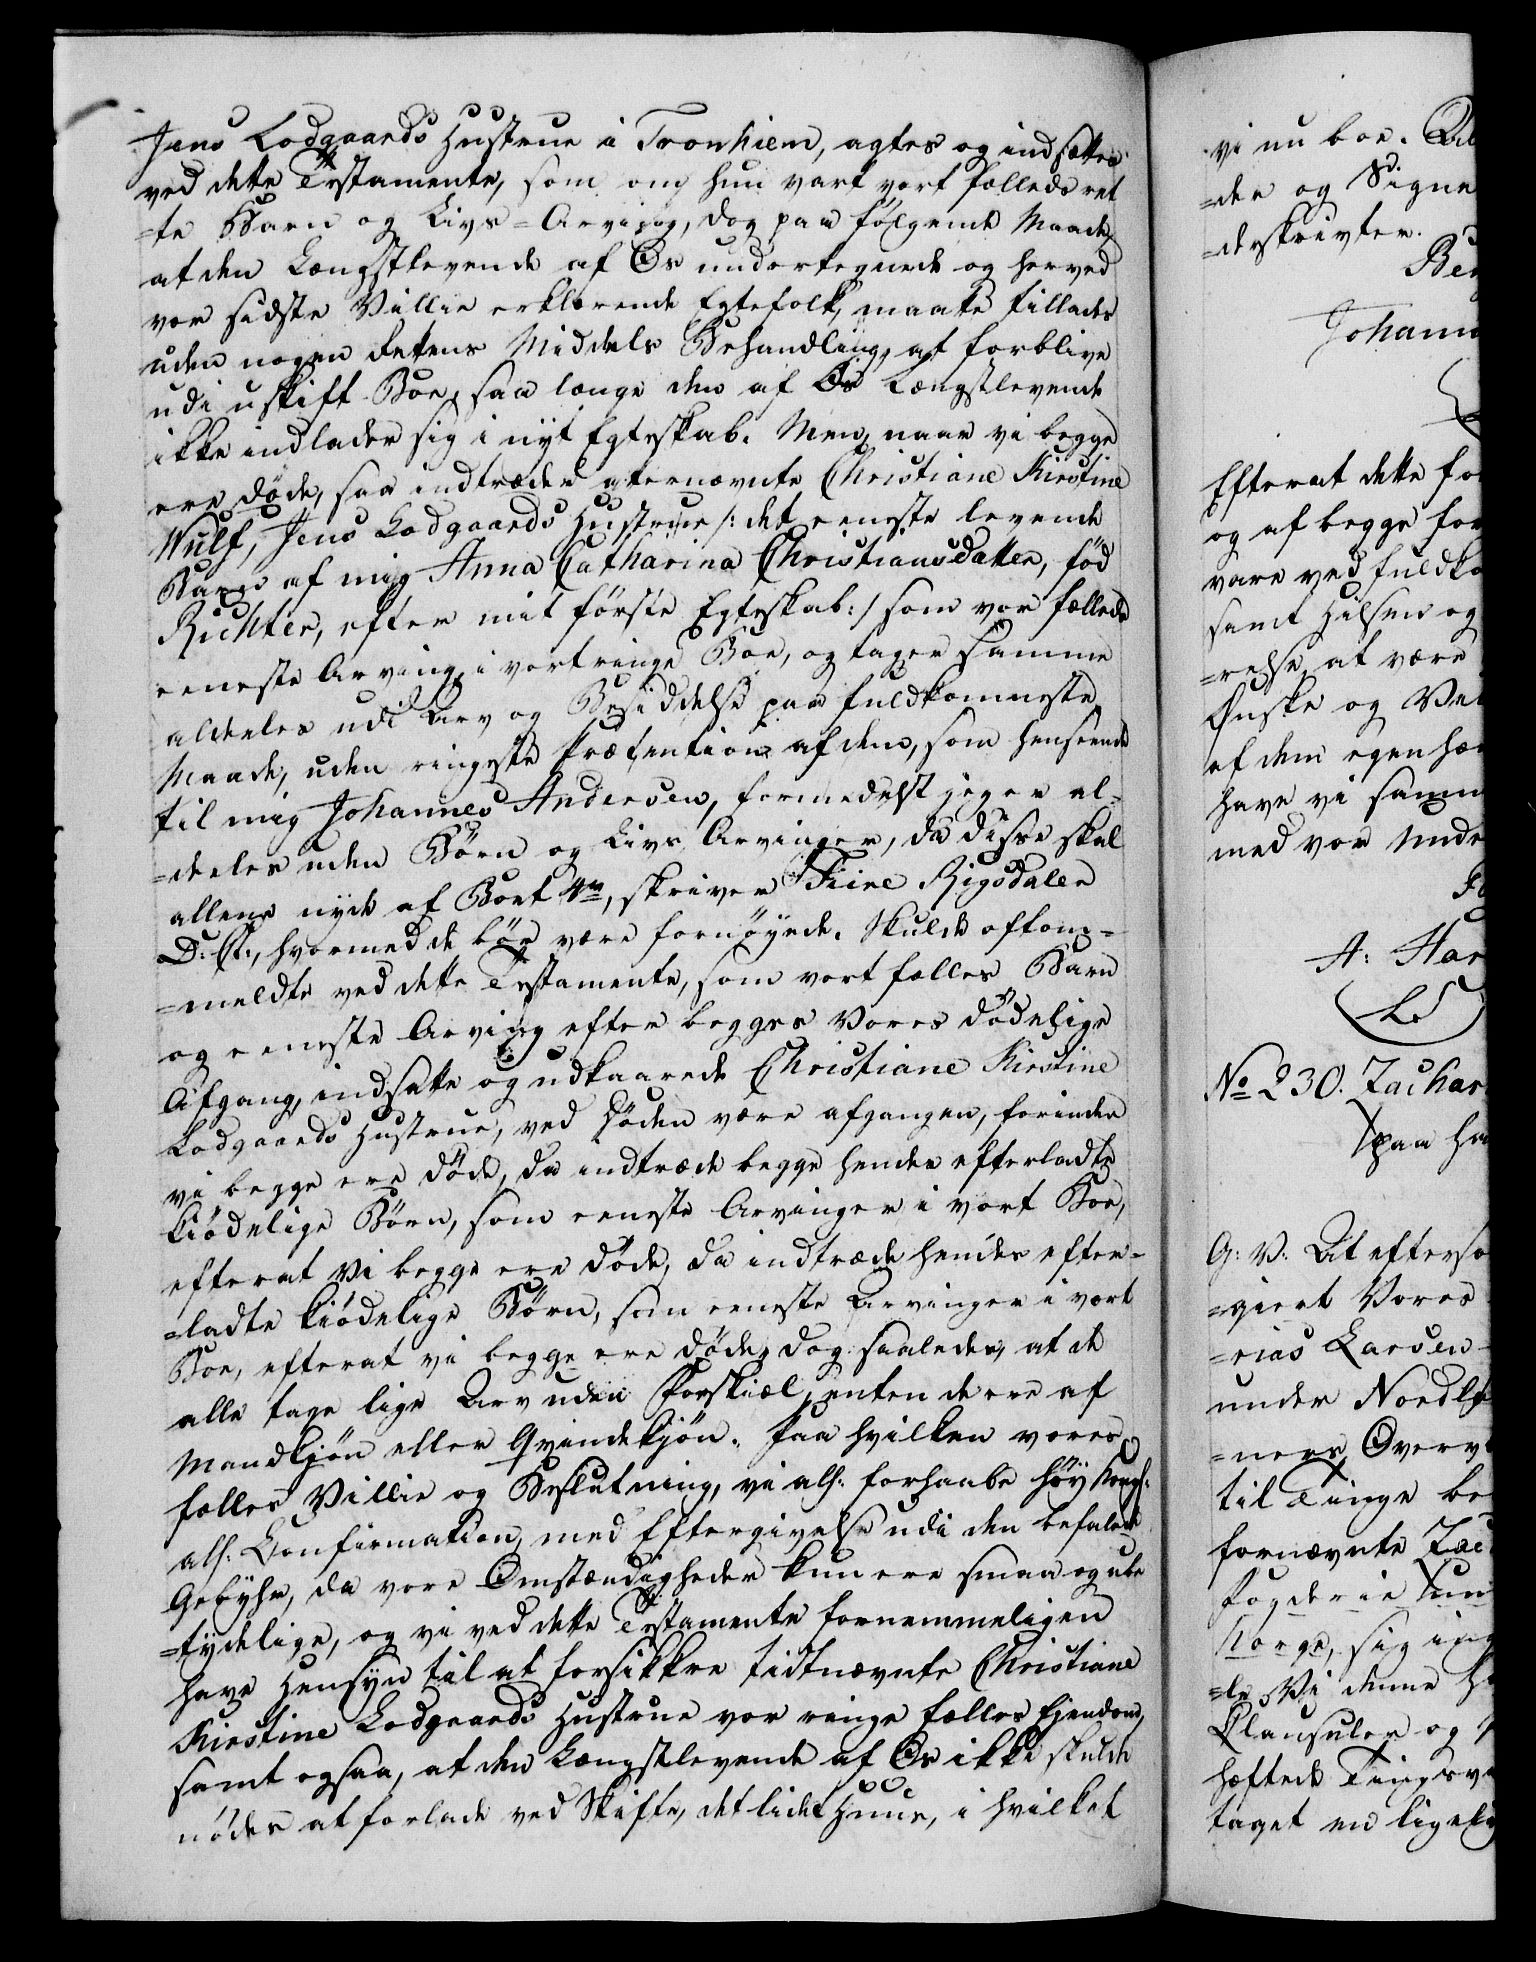 Jens Lodgaards Hustrue i Tronhiem, agtes og indsættes
ved dette Testamente, som om hun vart vort fælleds ret
=te Barn og Livs=Arving, dog paa følgende Maade,
at den Længstlevende af Os undertegnede og herved
vor sidste Villie erklærende Egtefolk, maatte tillades
uden nogen Fetens Middels Behandling, at forblive
udi uskift Boe, saa længe den af Os Længstlevende
ikke indlader sig i nyt Egteskab. Men, naar vi begge
ere døde, saa indtræder aternævnte Christiane Kirstine
Wulf, Jens Lodgaards Hustrue /: det eeneste levende
Barn af mig Anna Catharina Christiansdatter, fød
Richter, efter mit første Egteskab :/ som vor fælleds
eeneste Arving i vort ringe Boe, og tager samme
aldeles udi Arv og Besiddelse paa fuldkomneste
Maade, uden ringeste Prætention af dem, som henseende
til mig Johannes Andersen, formedelst jeg er al=
=deeles uden Børn og Livs Arvinger, da disse skal
allene nyde af Boet 4rd, skriver Fiire Rigsdaler
D: Ct:, hvormed de bør være fornøyede. Skulde oftom=
=meldte ved dette Testamente, som vort fælles Barn
og eeneste Arving efter begges Vores dødelige
Afgang, indsatte og udkaarede Christiane Kirstine
Lodgaards Hustrue, ved Døden være afgangen, forinden
vi begge ere døde, da indtræde begge hendes efterladte
kiødelige Børn, som eeneste Arvinger i vort Boe,
efterat vi begge ere døde, da indtræde hendes efter=
=ladte kiødelige Børn, som eeneste Arvinger i vort
Boe, efterat vi begge ere døde, dog saaledes, at de
alle tage lige Arv uden Forskiæl, enten de ere af
Mandkjøn eller Qvindekjøn. Paa hvilken vores
fælles Villie og Beslutning, vi alh: forhaabe høy Kongl:
alh: Confirmation, med Eftergivelse udi den befalede
Gebyhr, da vore Omstændigheder kun ere smaa og ube
=tydelige, og vi ved dette Testamente fornemmeligen
have Hensyn til at forsikkre tidtnævnte Christiane
Kirstine Lodgaards Hustrue vor ringe fælles Ejendom,
samt ogsaa, at den Længstlevende af Os ikke skulde
nødes at forlade ved Skifte, det lidet Huus, i hvilket
vi nu boe. At
=der og Signe
=derskrivter.
Ber
Johann
Efterat dette for
og af begge for
vare ved fuldko
samt Hilsen og
=relse, at være
Ønske og Vil
af dem egenhæn
have vi samm
med vor Unde
A: Har
(LS)
No 230. Zachar
paa ha
G: V: At eftersom
=giert Vores
=rias Larsen
under Nordlh
=ners Overv
til Tinge be
fornævnte Zac
Fogderie un
Norge, sig ing
=le Vi denne H
Clausuler og
hæftede Tingsvi
taget en ligely